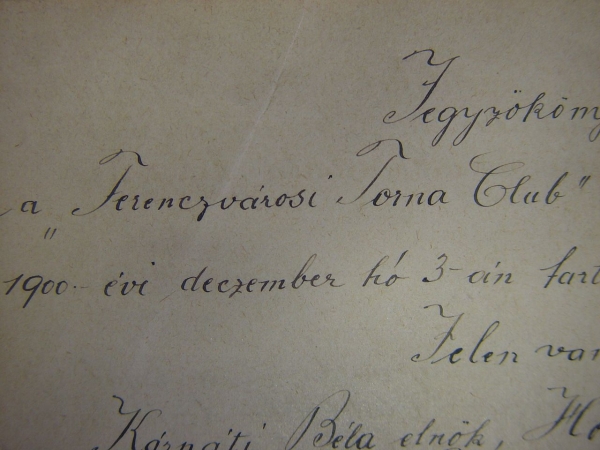 Jegyzőköny
a „Ferenczvárosi Torna Club"
1900.- évi deczember hó 3-án tart
Jelen van
Kárpáti Béla elnök, Ho